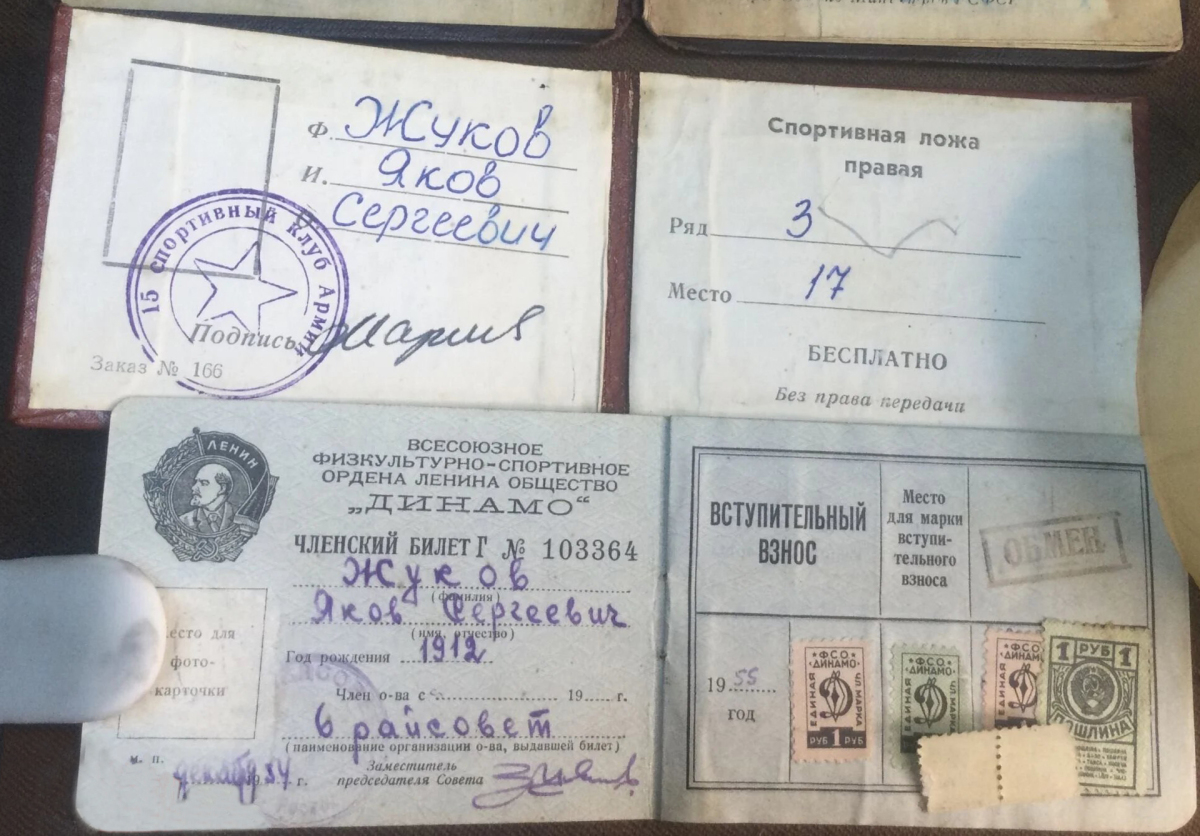 Ф. Жуков
И. Яков
О. Сергеевич
15 спортивный клуб Армии
Подпись
Заказ № 166
Спортивная ложа
правая
Ряд 3
Место 17
БЕСПЛАТНО
Без права передачи
ЛЕНИН
ВСЕСОЮЗНОЕ
ФИЗКУЛЬТУРНО-СПОРТИВНОЕ
ОРДЕНА ЛЕНИНА ОБЩЕСТВО
„ДИНАМО“
ЧЛЕНСКИЙ БИЛЕТ Г № 103364
Жуков
(фамилия)
Яков Сергеевич
(имя, отчество)
Год рождения 1912
Член о-ва с 19 г.
6 райсовет
(наименование организации о-ва, выдавшей билет)
место для
фото-
карточки
м. п.
декабр 1954 г.
Заместитель
председателя Совета
ВСТУПИТЕЛЬНЫЙ
ВЗНОС
Место
для марки
вступи-
тельного
взноса
ОБМЕН
1955
год
ФСО
ДИНАМО
ЕДИНАЯ
ЧЛ МАРКА
РУБ 1 РУБ
ФСО
ДИНАМО
ЕДИНАЯ
ЧЛ МАРКА
ФСО
ДИНАМО
ЕДИНАЯ
1 РУБ 1
ПОШЛИНА